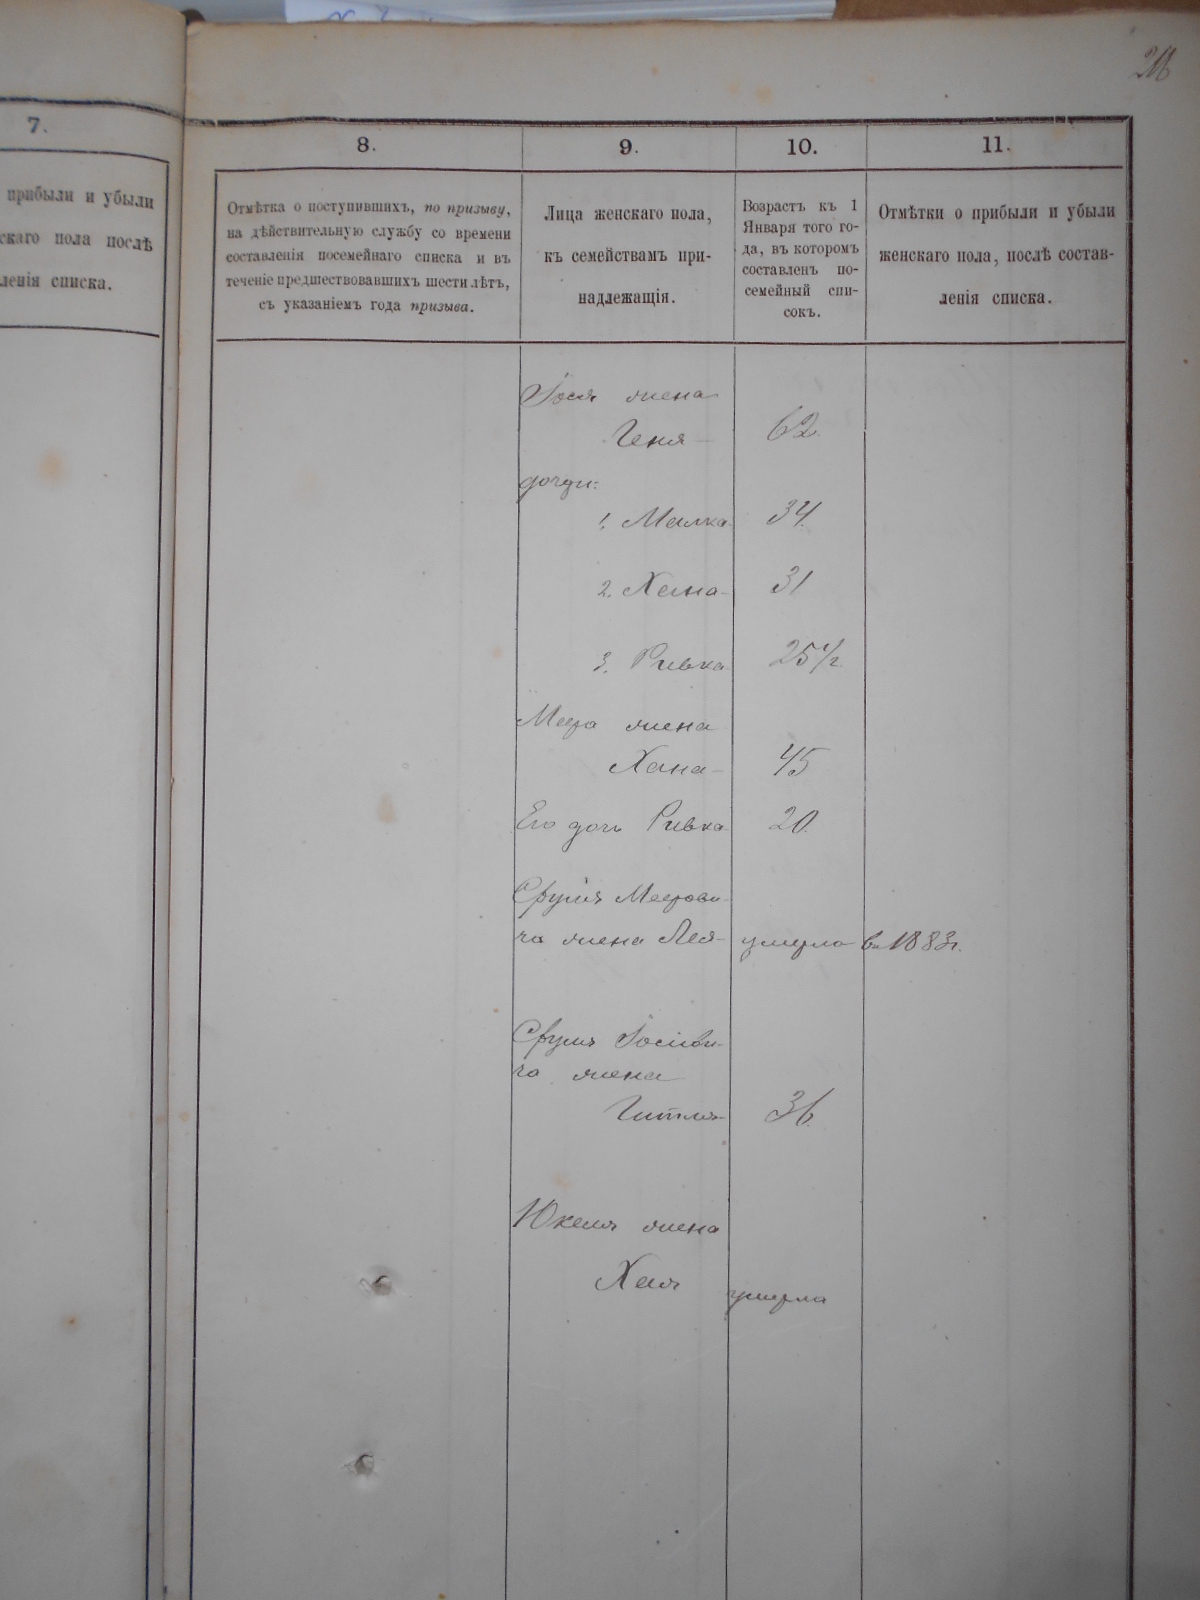 7.
прибыли и убыли
скаго пола послѣ
ленія списка.
8.
9.
10.
11.
Отмѣтка о поступившихъ, по призыву,
на дѣйствительную службу со времени
составленія посемейнаго списка и въ
теченіе предшествовавшихъ шести лѣтъ,
съ указаніемъ года призыва.
Лица женскаго пола,
къ семействамъ при-
надлежащія.
Возрастъ къ 1
Января того го-
да, въ которомъ
составленъ по-
семейный спи-
сокъ.
Отмѣтки о прибыли и убыли
женскаго пола, послѣ состав-
ленія списка.
Іося жена
Геня 62
дочери:
1. Малка 34
2. Хана 31
3. Ривка 25 1/2
Меера жена
Хана 45
Его дочь Ривка 20
Сруля Меерови-
ча жена Лея умерла въ 1883 г.
Сруля Іосіови-
ча жена
Гитля 36
Юкеля жена
Хая умерла